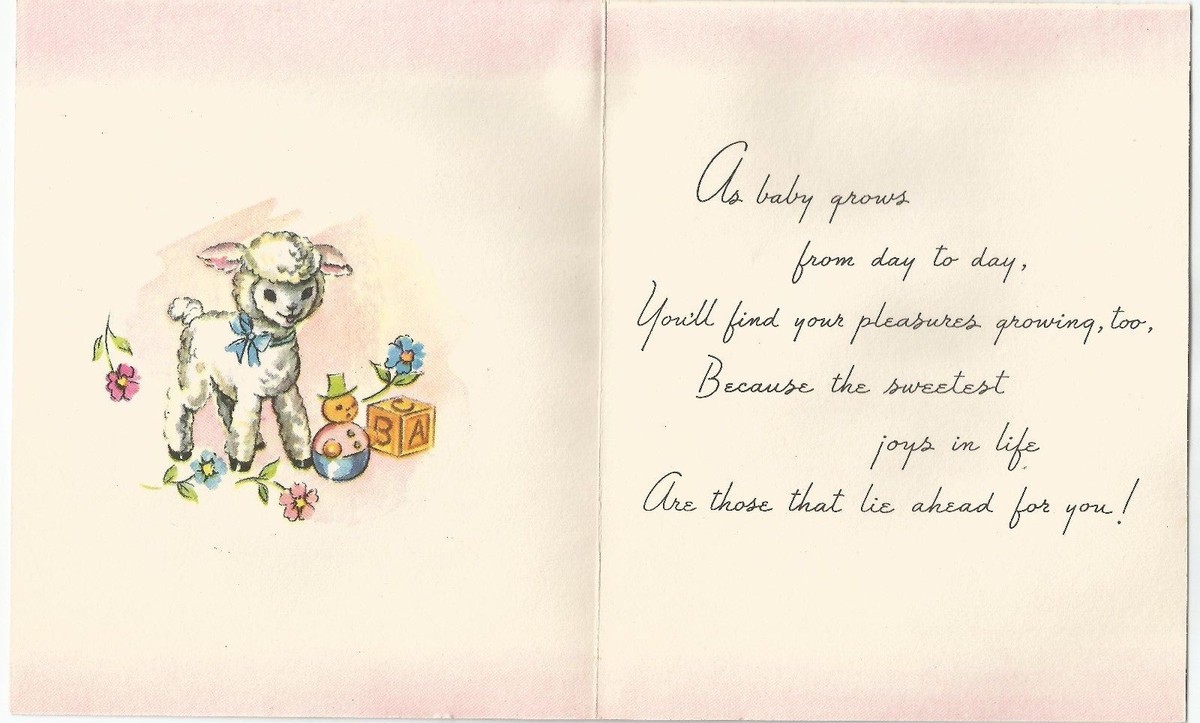 C
B A
As baby grows
from day to day,
You'll find your pleasures growing, too,
Because the sweetest
joys in life
Are those that lie ahead for you!